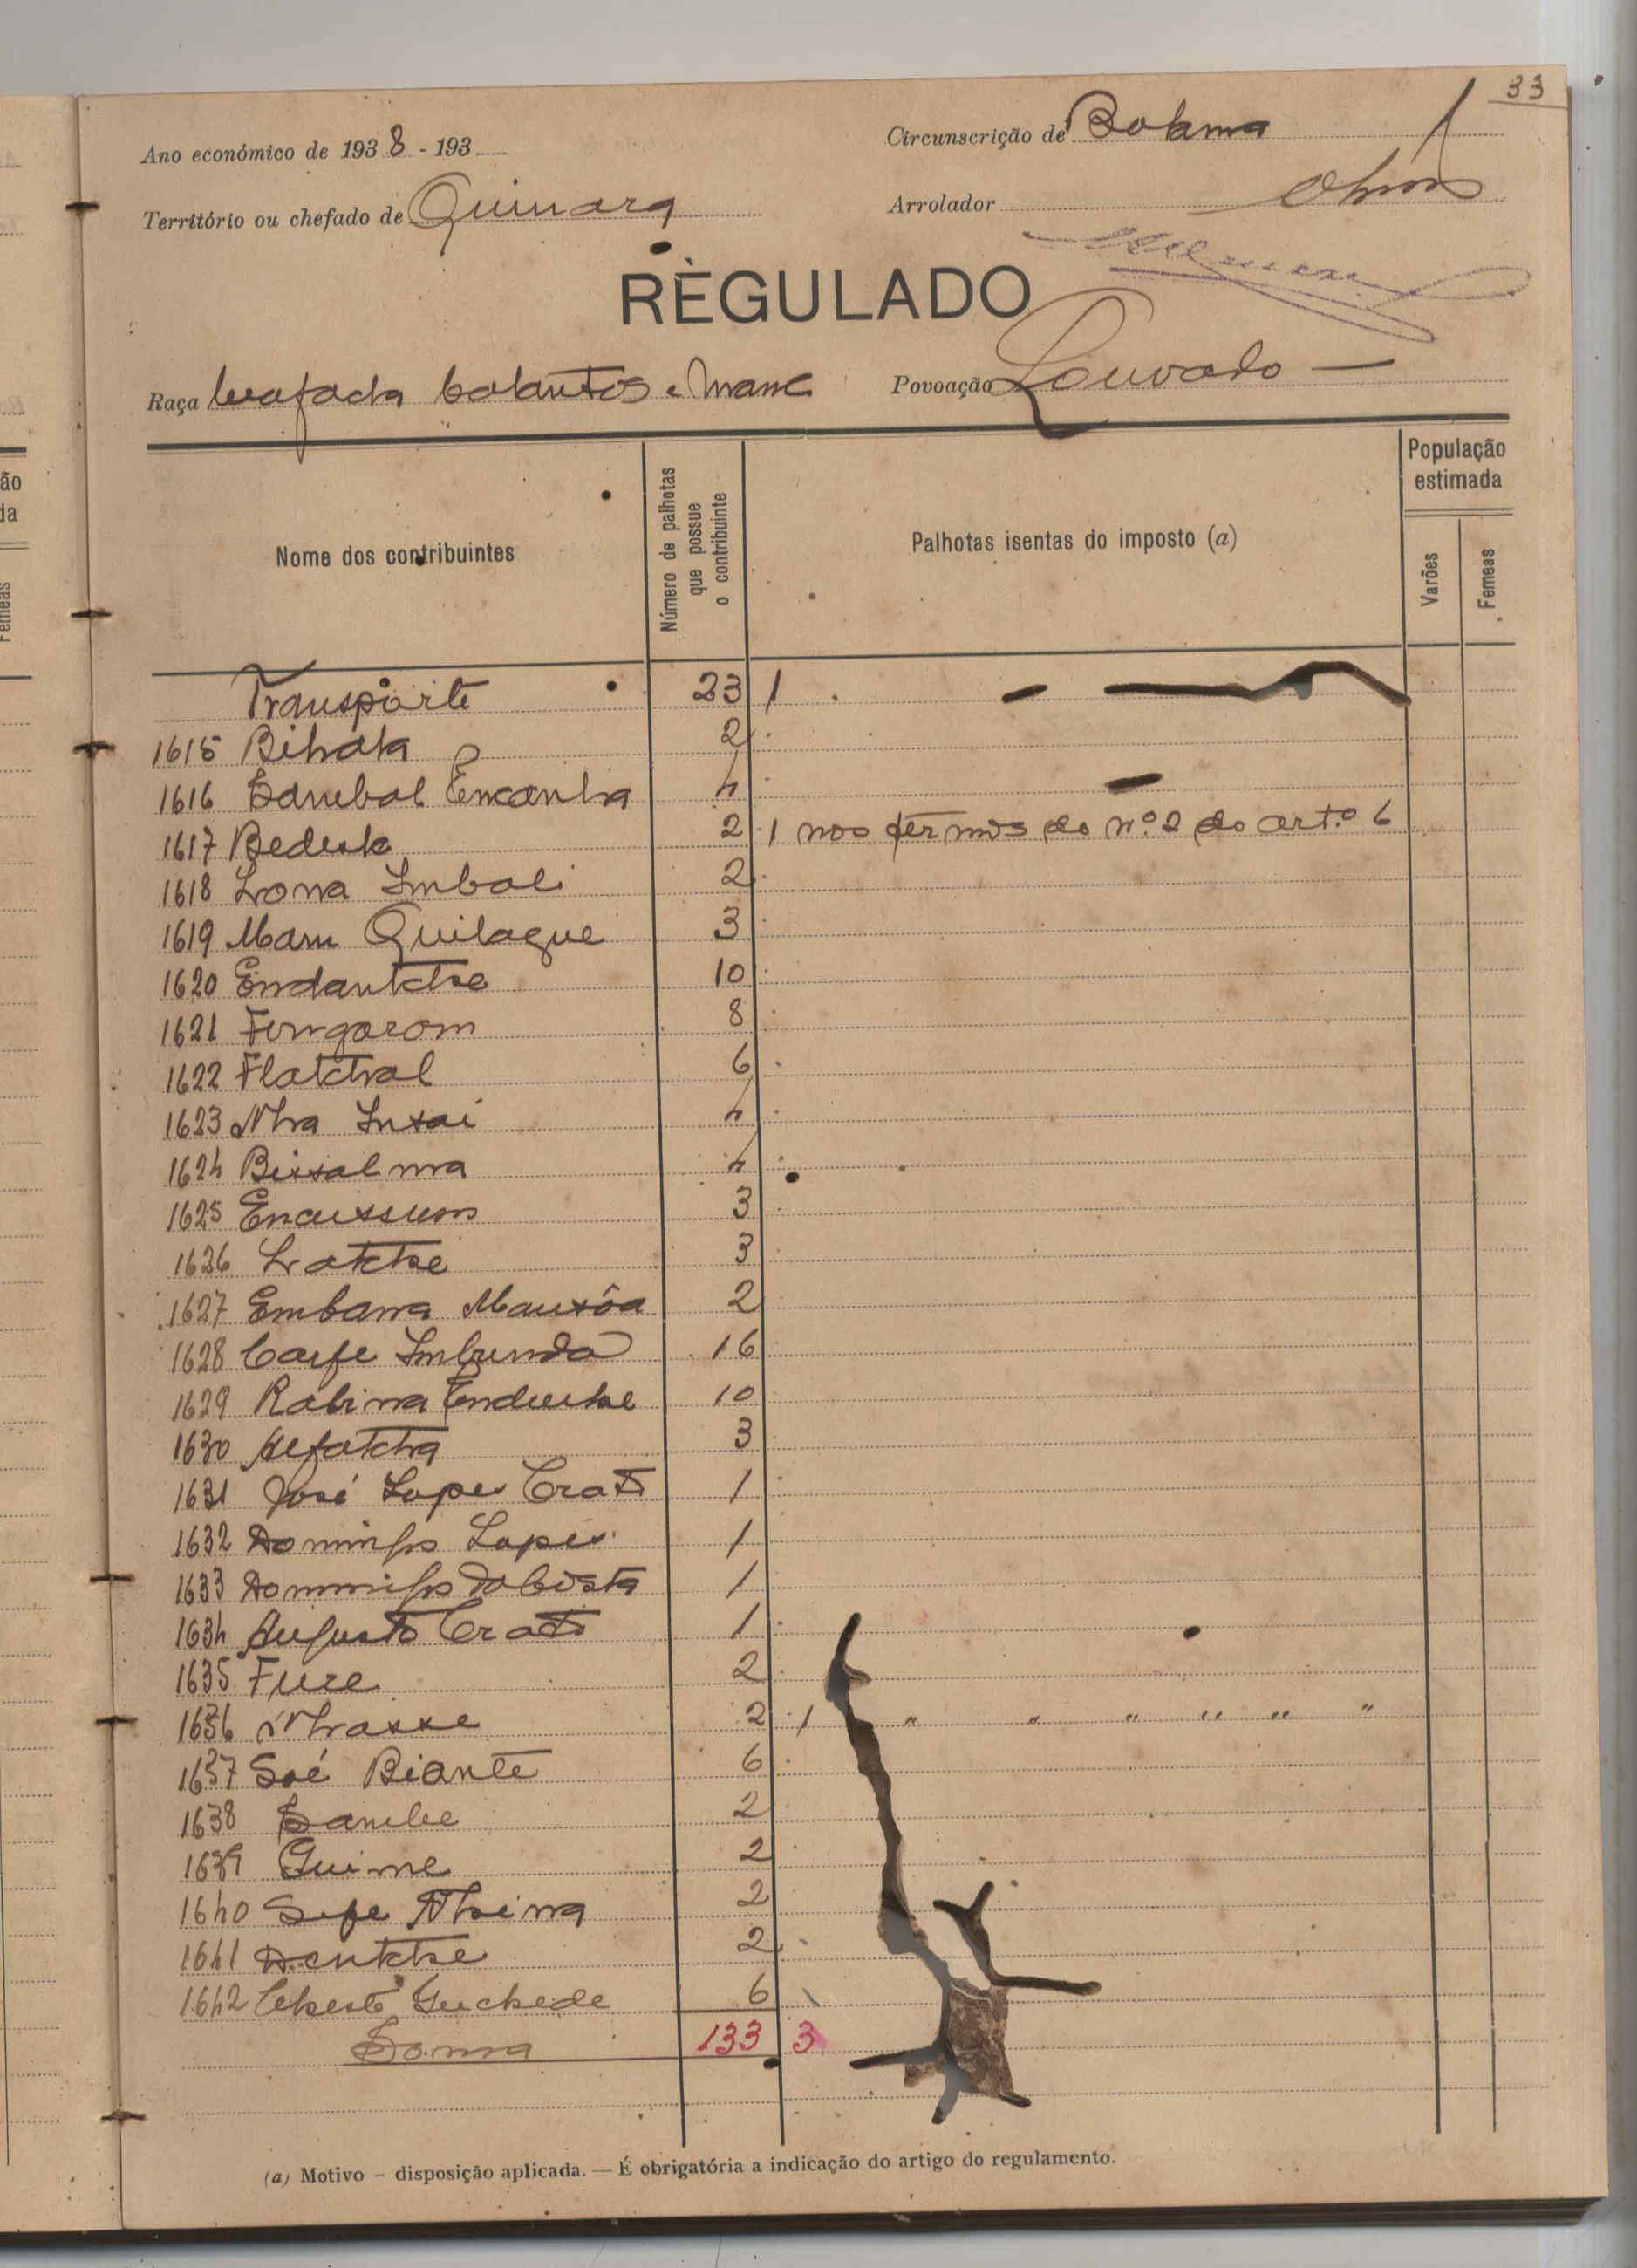 33
Ano económico de 1938 - 193
Circunscrição de Bolama
Território ou chefado de Quinara
Arrolador
RÈGULADO
Raça beafada balantas e manc
Povoação Louvado —
Nome dos contribuintes
Número de palhotas que possue o contribuinte
Palhotas isentas do imposto (a)
População estimada
Varões
Femeas
Transporte 23 1
1615 Bihata 2
1616 Sambal Encanha 4
1617 Bedeuta 2 1 nos têrmos do nº 2 do art.º 6
1618 Lona Imbali 2
1619 Mam Quilaque 3
1620 Endantche 10
1621 Fongarom 8
1622 Flatchal 6
1623 Nha Insai 4
1624 Bissalma 4
1625 Encussum 3
1626 Latche 3
1627 Embana Mansôa 2
1628 Carfe Imbunda 16
1629 Rabina Enduche 10
1630 Alfatcha 3
1631 José Lopes Crato 1
1632 Domingos Lopes 1
1633 Domingos da Costa 1
1634 Augusto Crato 1
1635 Fure 2
1636 Nhasse 2 1 " " " " " "
1637 Soé Biante 6
1638 Sambe 2
1639 Guime 2
1640 Sefe Nhina 2
1641 Dentche 2
1642 6
Soma 133 3
(a) Motivo – disposição aplicada. — É obrigatória a indicação do artigo do regulamento.